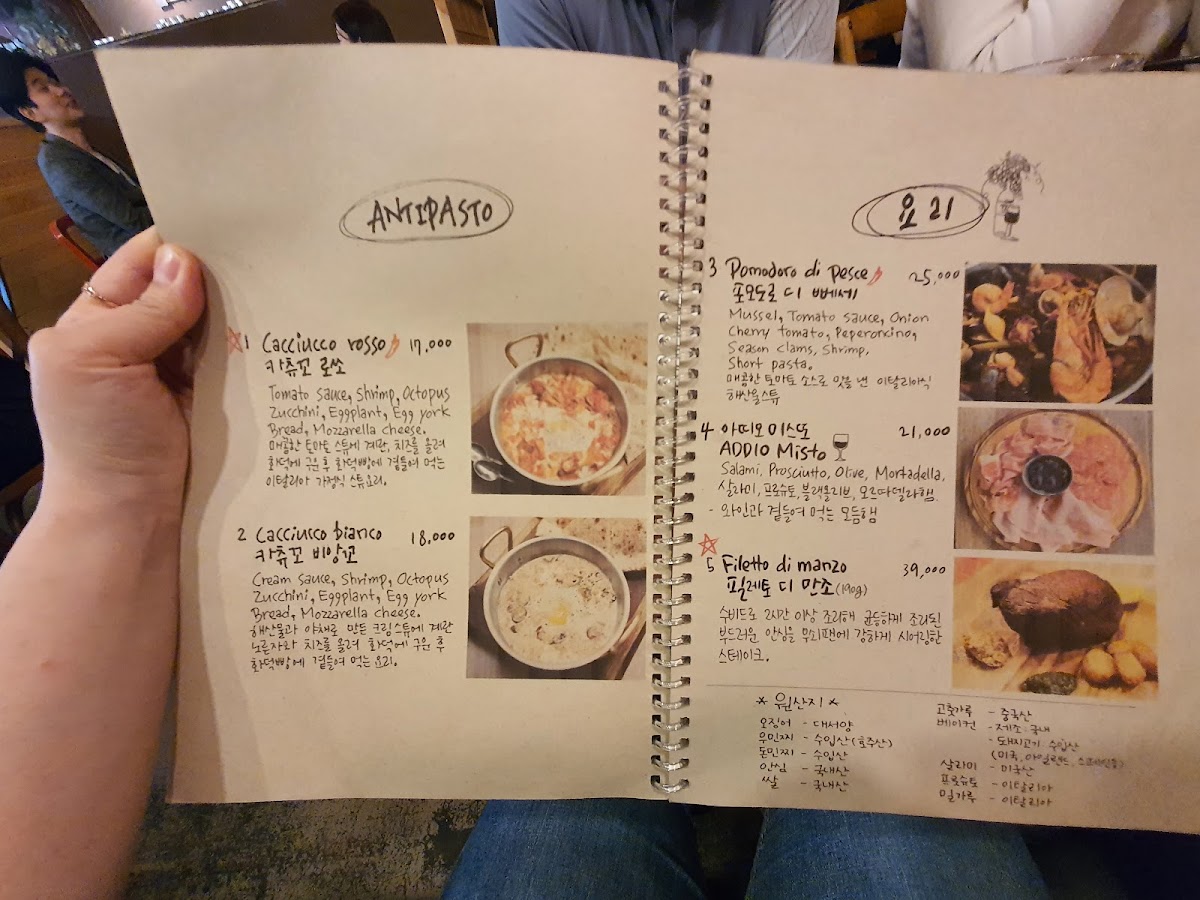 ANTIPASTO
1 Cacciucco rosso 17,000
카츄꼬 로쏘
Tomato sauce, Shrimp, Octopus
Zucchini, Eggplant, Egg york
Bread, Mozzarella cheese.
매콤한 토마토 스튜에 계란, 치즈를 올려
화덕에 구운 후 화덕빵에 곁들여 먹는
이탈리아 가정식 스튜요리.
2 Cacciucco bianco 18,000
카츄꼬 비앙코
Cream sauce, Shrimp, Octopus
Zucchini, Eggplant, Egg york
Bread, Mozzarella cheese.
해산물과 야채로 만든 크림스튜에 계란
노른자와 치즈를 올려 화덕에 구운 후
화덕빵에 곁들여 먹는 요리.
요리
3 Pomodoro di pesce 25,000
포모도로 디 뻬쉐
Mussel, Tomato sauce, Onion
Cherry tomato, Peperoncino,
Season clams, Shrimp,
Short pasta.
매콤한 토마토 소스로 맛을 낸 이탈리아식
해산물스튜
4 아띠오 미스또 21,000
ADDIO Misto
Salami, Prosciutto, Olive, Mortadella,
살라미, 프로슈토, 블랙올리브, 모르따델라햄.
- 와인과 곁들여 먹는 모듬햄
5 Filetto di manzo 39,000
필레토 디 만조 (190g)
수비드로 2시간 이상 조리해 균등하게 조리된
부드러운 안심을 무쇠팬에 강하게 시어링한
스테이크.
* 원산지 *
오징어 - 대서양
우민찌 - 수입산 (호주산)
돈민찌 - 수입산
안심 - 국내산
쌀 - 국내산
고춧가루 - 중국산
베이컨 - 제조: 국내
- 돼지고기: 수입산
(미국, 아일랜드,
살라미 - 미국산
프로슈토 - 이탈리아
밀가루 - 이탈리아